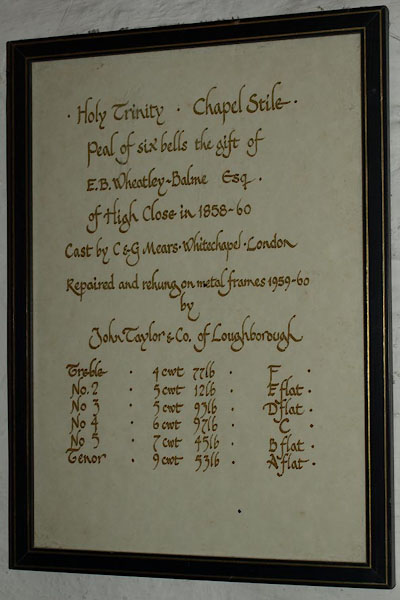 · Holy Trinity · Chapel Stile ·
Peal of six bells the gift of
E.B. Wheatley~Balme Esq.
of High Close in 1858-60
Cast by C & G Mears · Whitechapel · London
Repaired and rehung on metal frames 1959-60
by
John Taylor & Co. of Loughborough
Treble · 4 cwt 77lb · F ·
No. 2 · 5 cwt 12lb · E flat ·
No 3 · 5 cwt 93lb · D flat ·
No 4 · 6 cwt 97lb · C ·
No 5 · 7 cwt 45lb · B flat ·
Tenor · 9 cwt 53lb · A flat ·